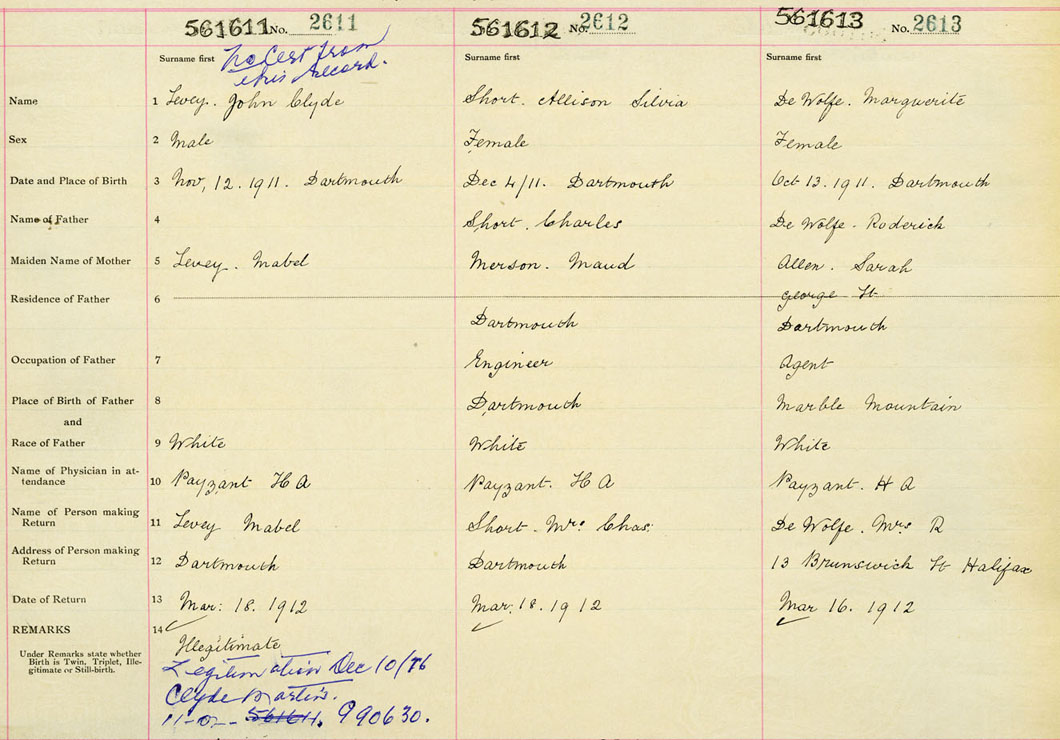 561611 No. 2611 561612 No. 2612 561613 No. 2613
Surname first No Cert from Surname first Surname first
this record.
Name 1 Levey. John Clyde Short. Allison Silvia De Wolfe. Marguerite
Sex 2 Male Female Female
Date and Place of Birth 3 Nov, 12. 1911. Dartmouth Dec 4/11. Dartmouth Oct 13. 1911. Dartmouth
Name of Father 4 Short. Charles De Wolfe. Roderick
Maiden Name of Mother 5 Levey. Mabel Merson. Maud Allen. Sarah
Residence of Father 6 George St
Dartmouth Dartmouth
Occupation of Father 7 Engineer Agent
Place of Birth of Father 8 Dartmouth Marble Mountain
and
Race of Father 9 White White White
Name of Physician in at-
tendance 10 Payzant H A Payzant. H A Payzant. H A
Name of Person making
Return 11 Levey Mabel Short. Mrs Chas. De Wolfe. Mrs R
Address of Person making
Return 12 Dartmouth Dartmouth 13 Brunswick St Halifax
Date of Return 13 Mar: 18. 1912 Mar. 18. 1912 Mar 16. 1912
REMARKS 14
Under Remarks state whether
Birth is Twin, Triplet, Ille-
gitimate or Still-birth.
Illegitimate
Legitimation Dec 10/76
Clyde
561611. 990630.